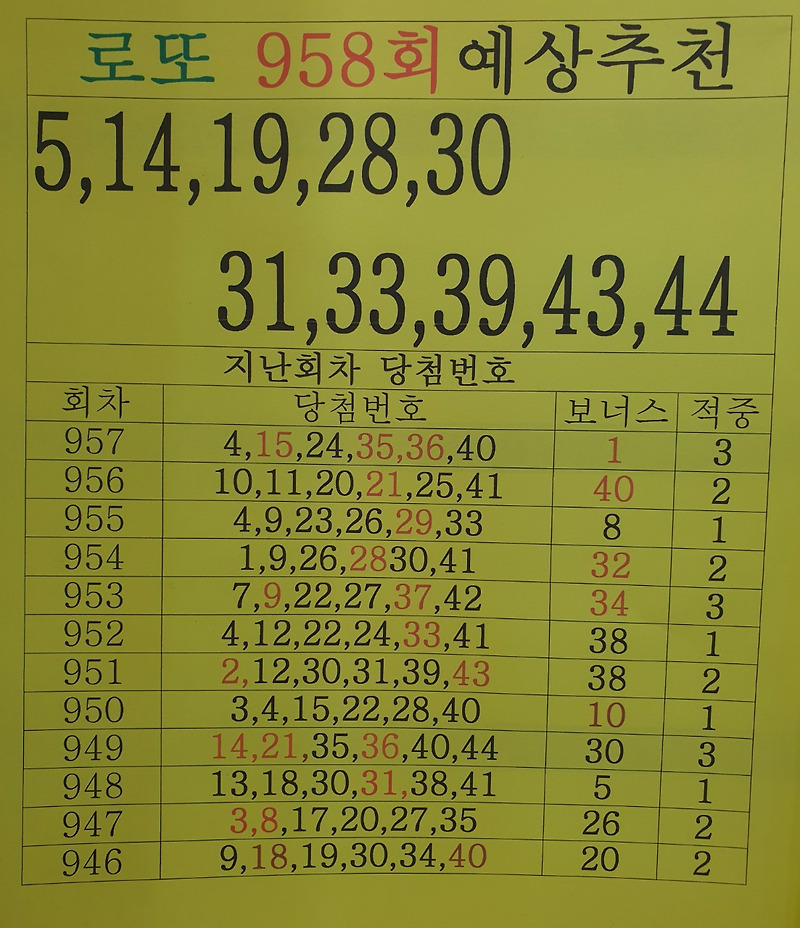 로또 958회예상추천
5,14,19,28,30
31,33,39,43,44
지난회차 당첨번호
회차 당첨번호 보너스 적중
957 4,15,24,35,36,40 1 3
956 10,11,20,21,25,41 40 2
955 4,9,23,26,29,33 8 1
954 1,9,26,2830,41 32 2
953 7,9,22,27,37,42 34 3
952 4,12,22,24,33,41 38 1
951 2,12,30,31,39,43 38 2
950 3,4,15,22,28,40 10 1
949 14,21,35,36,40,44 30 3
948 13,18,30,31,38,41 5 1
947 3,8,17,20,27,35 26 2
946 9,18,19,30,34,40 20 2